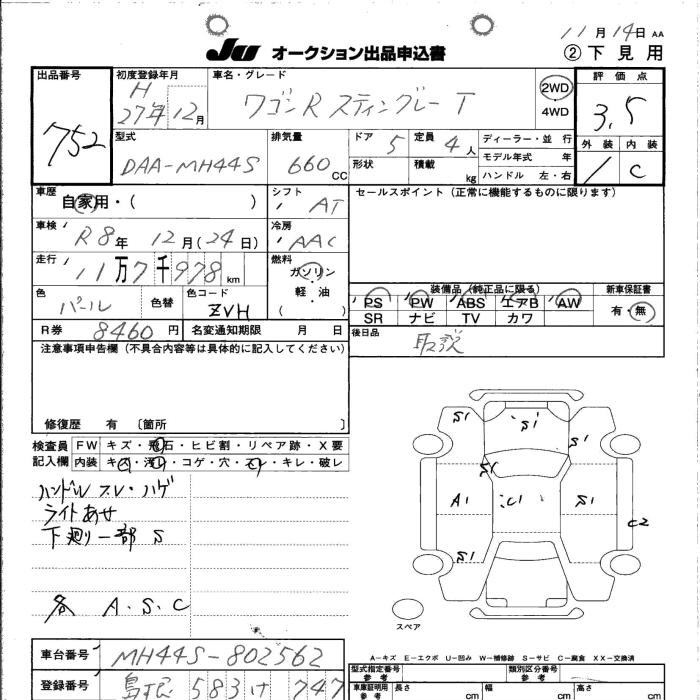 11月14日 AA
JU オークション出品申込書 ②下見用
出品番号 752
初度登録年月 H 27年12月
車名・グレード ワゴンR スティングレー T
2WD
4WD
評価点 3.5
外装 内装
C
型式 DAA-MH44S
排気量 660 CC
ドア 5 定員 4人
形状 積載 kg
ディーラー・並 行
モデル年式 年
ハンドル 左・右
車歴 自家用・( )
シフト AT
セールスポイント(正常に機能するものに限ります)
車検 R8年 12月(24日)
冷房 AAC
走行 11万7千978km
燃料 ガソリン
軽・油
( )
色 パール 色替 色コード ZVH
装備品(純正品に限る) 新車保証書
PS PW ABS エアB AW
SR ナビ TV カワ
有・無
R券 8460円 名変通知期限 月 日
後日品 取説
注意事項申告欄(不具合内容等は具体的に記入してください)
修復歴 有 〔箇所 〕
検査員 FW キズ・飛石・ヒビ割・リペア跡・X要
記入欄 内装 キズ・汚れ・コゲ・穴・スレ・キレ・破レ
ハンドル スレ・ハゲ
ライトあせ
下廻り一部 S
各 A.S.C
S1 S1 S1
S1
A1 C1 S1
C2
S1 S1
スペア
A-キズ E-エクボ U-凹み W-補修跡 S-サビ C-腐食 XX-交換済
車台番号 MH44S-802562
登録番号 583 け 747
型式指定番号 参考 類別区分番号 参考
車庫証明用 参考 長さ cm 幅 cm 高さ cm